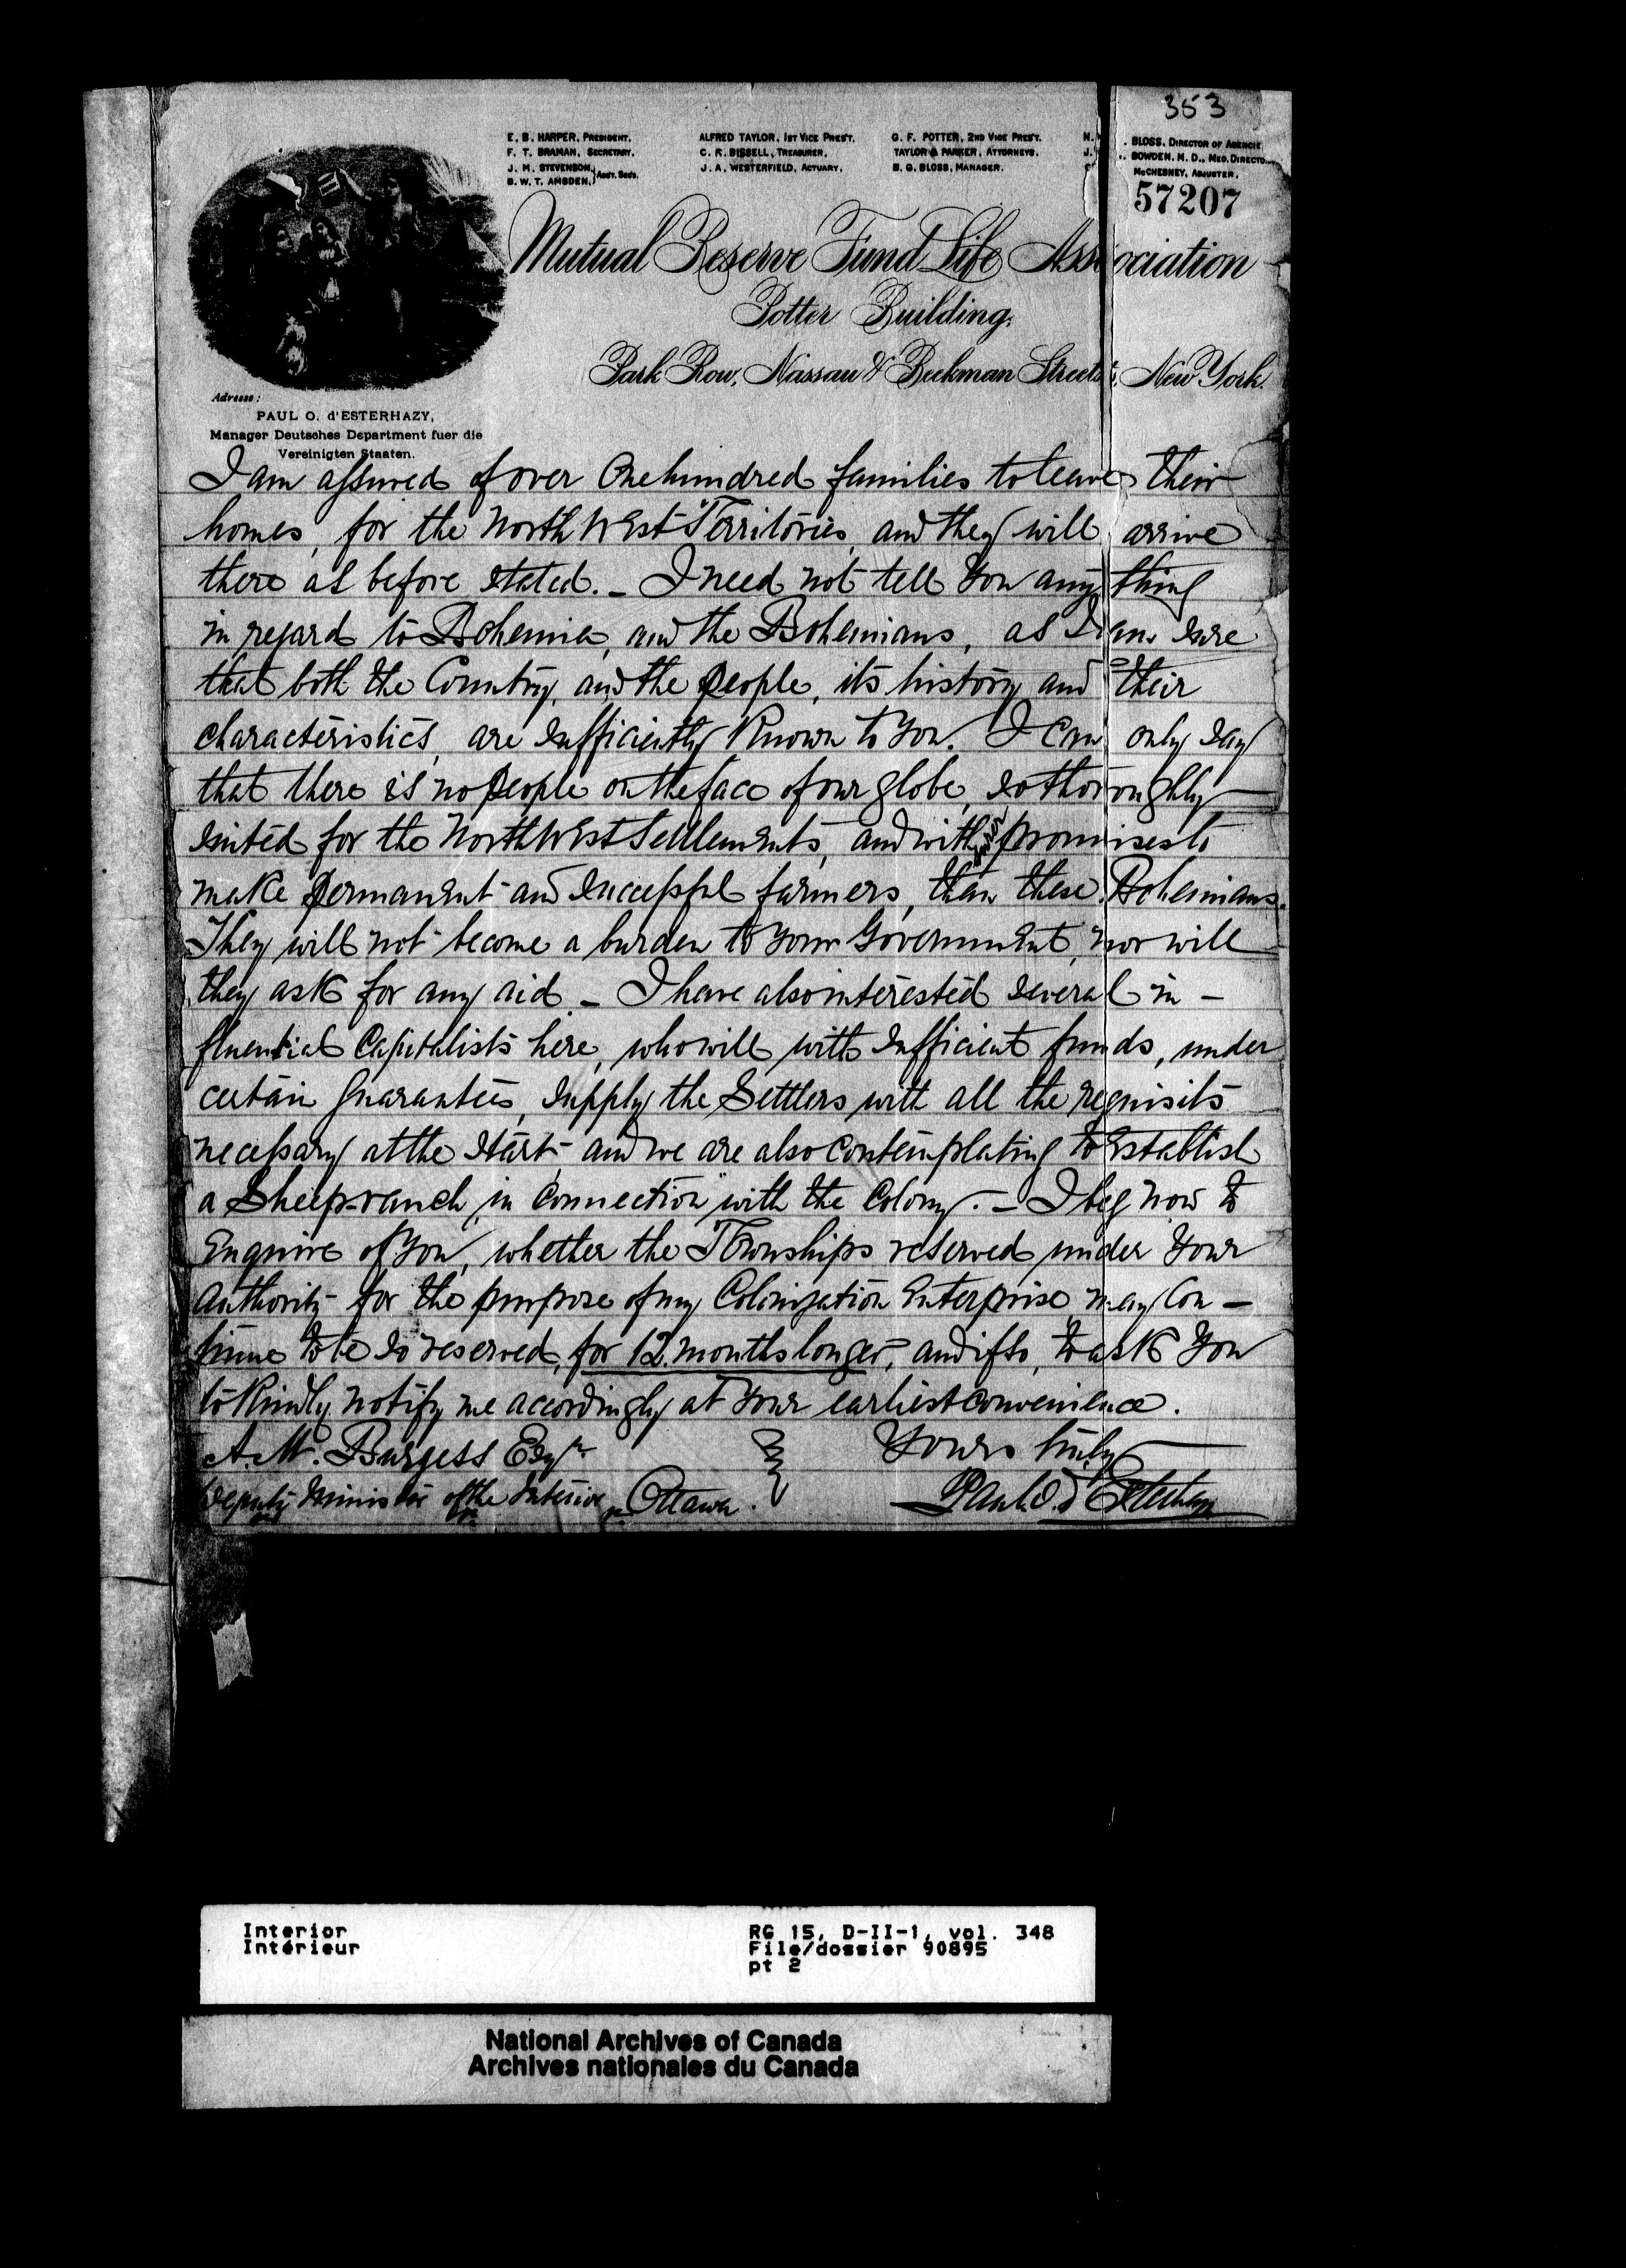 353
E. B. HARPER, PRESIDENT.
F. T. BRAMAN, SECRETARY.
J. M. STEVENSON,
B. W. T. AMSDEN, } ASS'T. SEC'S.
ALFRED TAYLOR, 1ST VICE PRES'T.
C. R. BISSELL, TREASURER.
J. A. WESTERFIELD, ACTUARY.
G. F. POTTER, 2ND VICE PRES'T.
TAYLOR & PARKER, ATTORNEYS.
B. G. BLOSS, MANAGER.
BLOSS, DIRECTOR OF AGENCIE
BOWDEN, M. D., MED. DIRECTO
McCHESNEY, ADJUSTER.
57207
Mutual Reserve Fund Life Association
Potter Building,
Park Row, Nassau & Beekman Streets, New York.
Adresse:
PAUL O. d'ESTERHAZY,
Manager Deutsches Department fuer die
Vereinigten Staaten.
I am assured of over One hundred families to leave their
homes, for the North West Territories, and they will arrive
there as before stated. – I need not tell You any thing
in regard to Bohemia, and the Bohemians, as I am sure
that both the Country, and the people, its history and their
characteristics, are sufficiently Known to You. I can only say
that there is no people on the face of our globe, so thoroughly
suited for the North West Settlements, and with more promises to
make permanent and successful farmers, than these Bohemians.
They will not become a burden to Your Government, nor will
they ask for any aid – I have also interested several in –
fluential Capitalists here, who will with sufficient funds, under
certain Guarantees, supply the Settlers with all the requisits
necessary at the start, and we are also contemplating to Establish
a Sheep-ranch, in Connection with the Colony. – I beg now to
Enquire of You, whether the Townships reserved under Your
Authority for the purpose of my Colonization Enterprise may Con –
tinue to be so reserved, for 12 months longer, and if so, to ask You
to Kindly notify me accordingly at Your earliest convenience.
A. M. Burgess Esqr
Deputy Minister of the Interior Ottawa.
Yours truly
Paul O. d'Esterhazy
Interior
Intérieur
RG 15, D-II-1, vol. 348
File/dossier 90895
pt 2
National Archives of Canada
Archives nationales du Canada